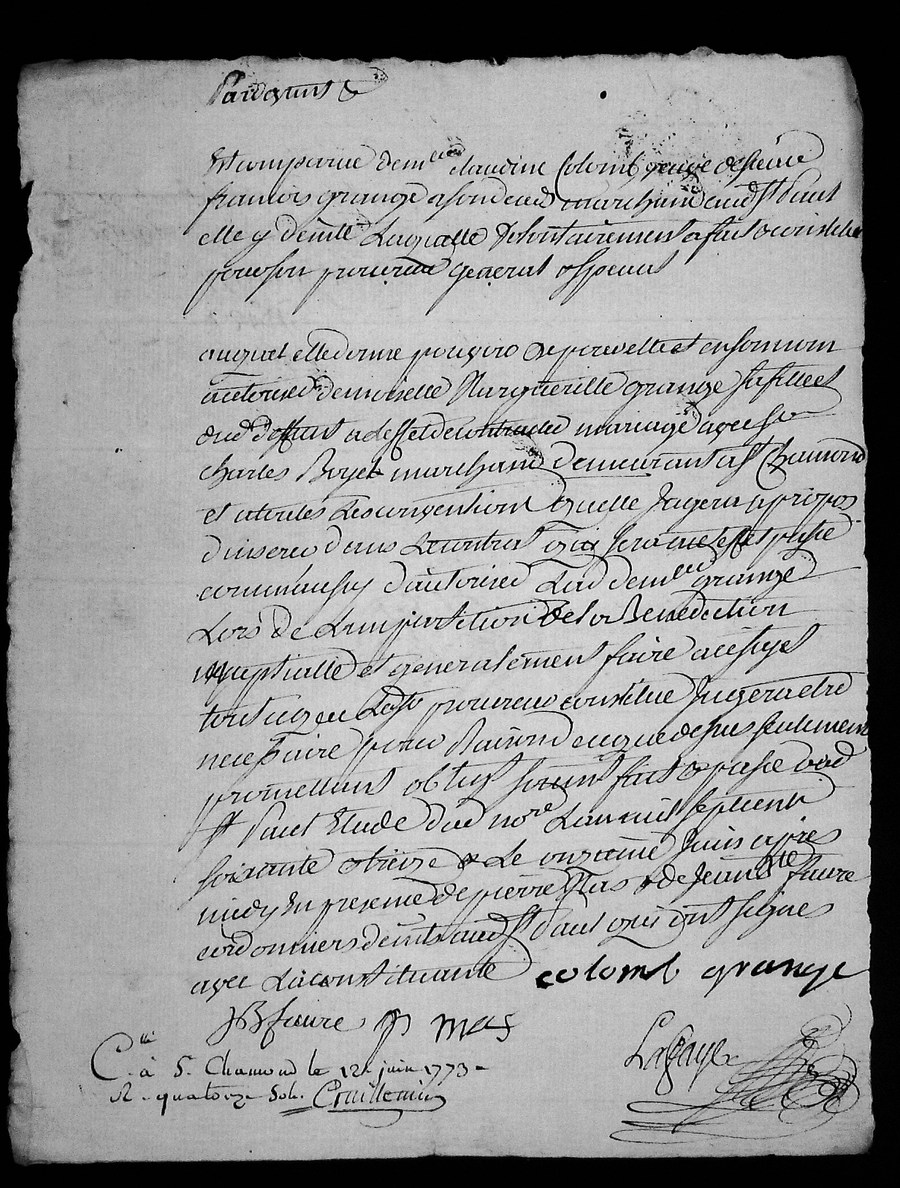 Pardevant &
Est comparue dem.lle claudine Colomb veuve de sieur
francois grange a son deces marchand aud. St Paul
elle y demt. Laquelle volontairement a fait & constitué
pour son procureur general & special
auquel elle donne pouvoir de pour elle et en son nom
autoriser demoiselle Margueritte grange sa fille et
dud. deffunt a l'effet de contracter mariage avec sr
Charles Boyer marchand demeurant a St Chamond
et a toutes les conventions quelle jugera a propos
d'inserer dans le contrat qui sera a cet effet passé
comm'aussy d'autoriser Lad. dem.lle grange
Lors de L'impartition de la Benediction
nuptialle et generalement faire a ce sujet
tout ce que Led. sr procureur constitué jugera etre
necessaire pour Raison de ce que dessus seulement
promettant oblig.t soum.t fait & passé aud.
St Paul Etude dud. no.re L'an mil sept cent
soixante & treize & Le onzieme Juin apres
midy En presence de pierre Mas & de Jean B.te faure
cordonniers demts. aud. St Paul qui ont signés
avec La constituante colomb grange
JB faure p mas
C.lé à S. Chamond le 12. juin 1773.
R. quatorze sols.
Lafaye